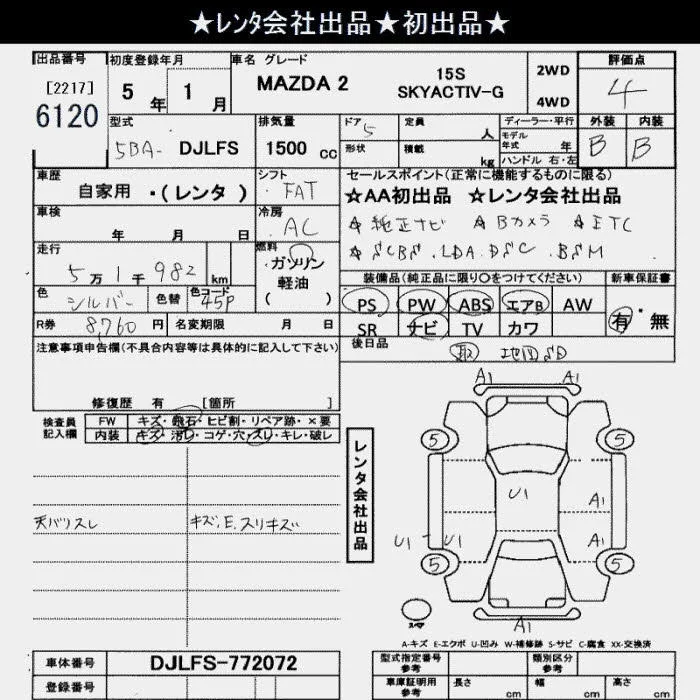 ★レンタ会社出品★初出品★
出品番号 初度登録年月 車名 グレード 評価点
[2217] 6120
5 年 1 月
MAZDA 2 15S
SKYACTIV-G
2WD
4WD
4
型式
5BA- DJLFS
排気量
1500 cc
ドア 5
形状
定員 人
積載 kg
ディーラー・平行
モデル年式 年
ハンドル 右・左
外装 内装
B B
車歴
自家用 ・(レンタ )
シフト
FAT
セールスポイント(正常に機能するものに限る)
★AA初出品 ☆レンタ会社出品
☆純正ナビ ☆Bカメラ ☆ETC
☆SCBS .LDA.DSC .BSM
車検
年 月 日
冷房
AC
走行
5万1千982 km
燃料
ガソリン
軽油
( )
色 シルバー 色替 色コード 45P
R券 8,760 円 名変期限 月 日
装備品(純正品に限り○をつけてください) 新車保証書
PS PW ABS エアB AW
SR ナビ TV カワ
有・無
後日品
取 地図SD
注意事項申告欄(不具合内容等は具体的に記入して下さい)
修復歴 有 [箇所 ]
検査員
記入欄
FW キズ・飛石・ヒビ割・リペア跡・×要
内装 キズ・汚レ・コゲ・穴・スレ・キレ・破レ
天バリスレ
キズ、E、スリキズ
レンタ会社出品
A1 A1
5 5
U1 A1
U1 - U1 A1
5 5
A1
スペア
A-キズ E-エクボ U-凹み W-補修跡 S-サビ C-腐食 XX-交換済
車体番号 DJLFS-772072
登録番号
型式指定番号
参考
類別区分
参考
車庫証明用
参考
長さ cm 幅 cm 高さ cm